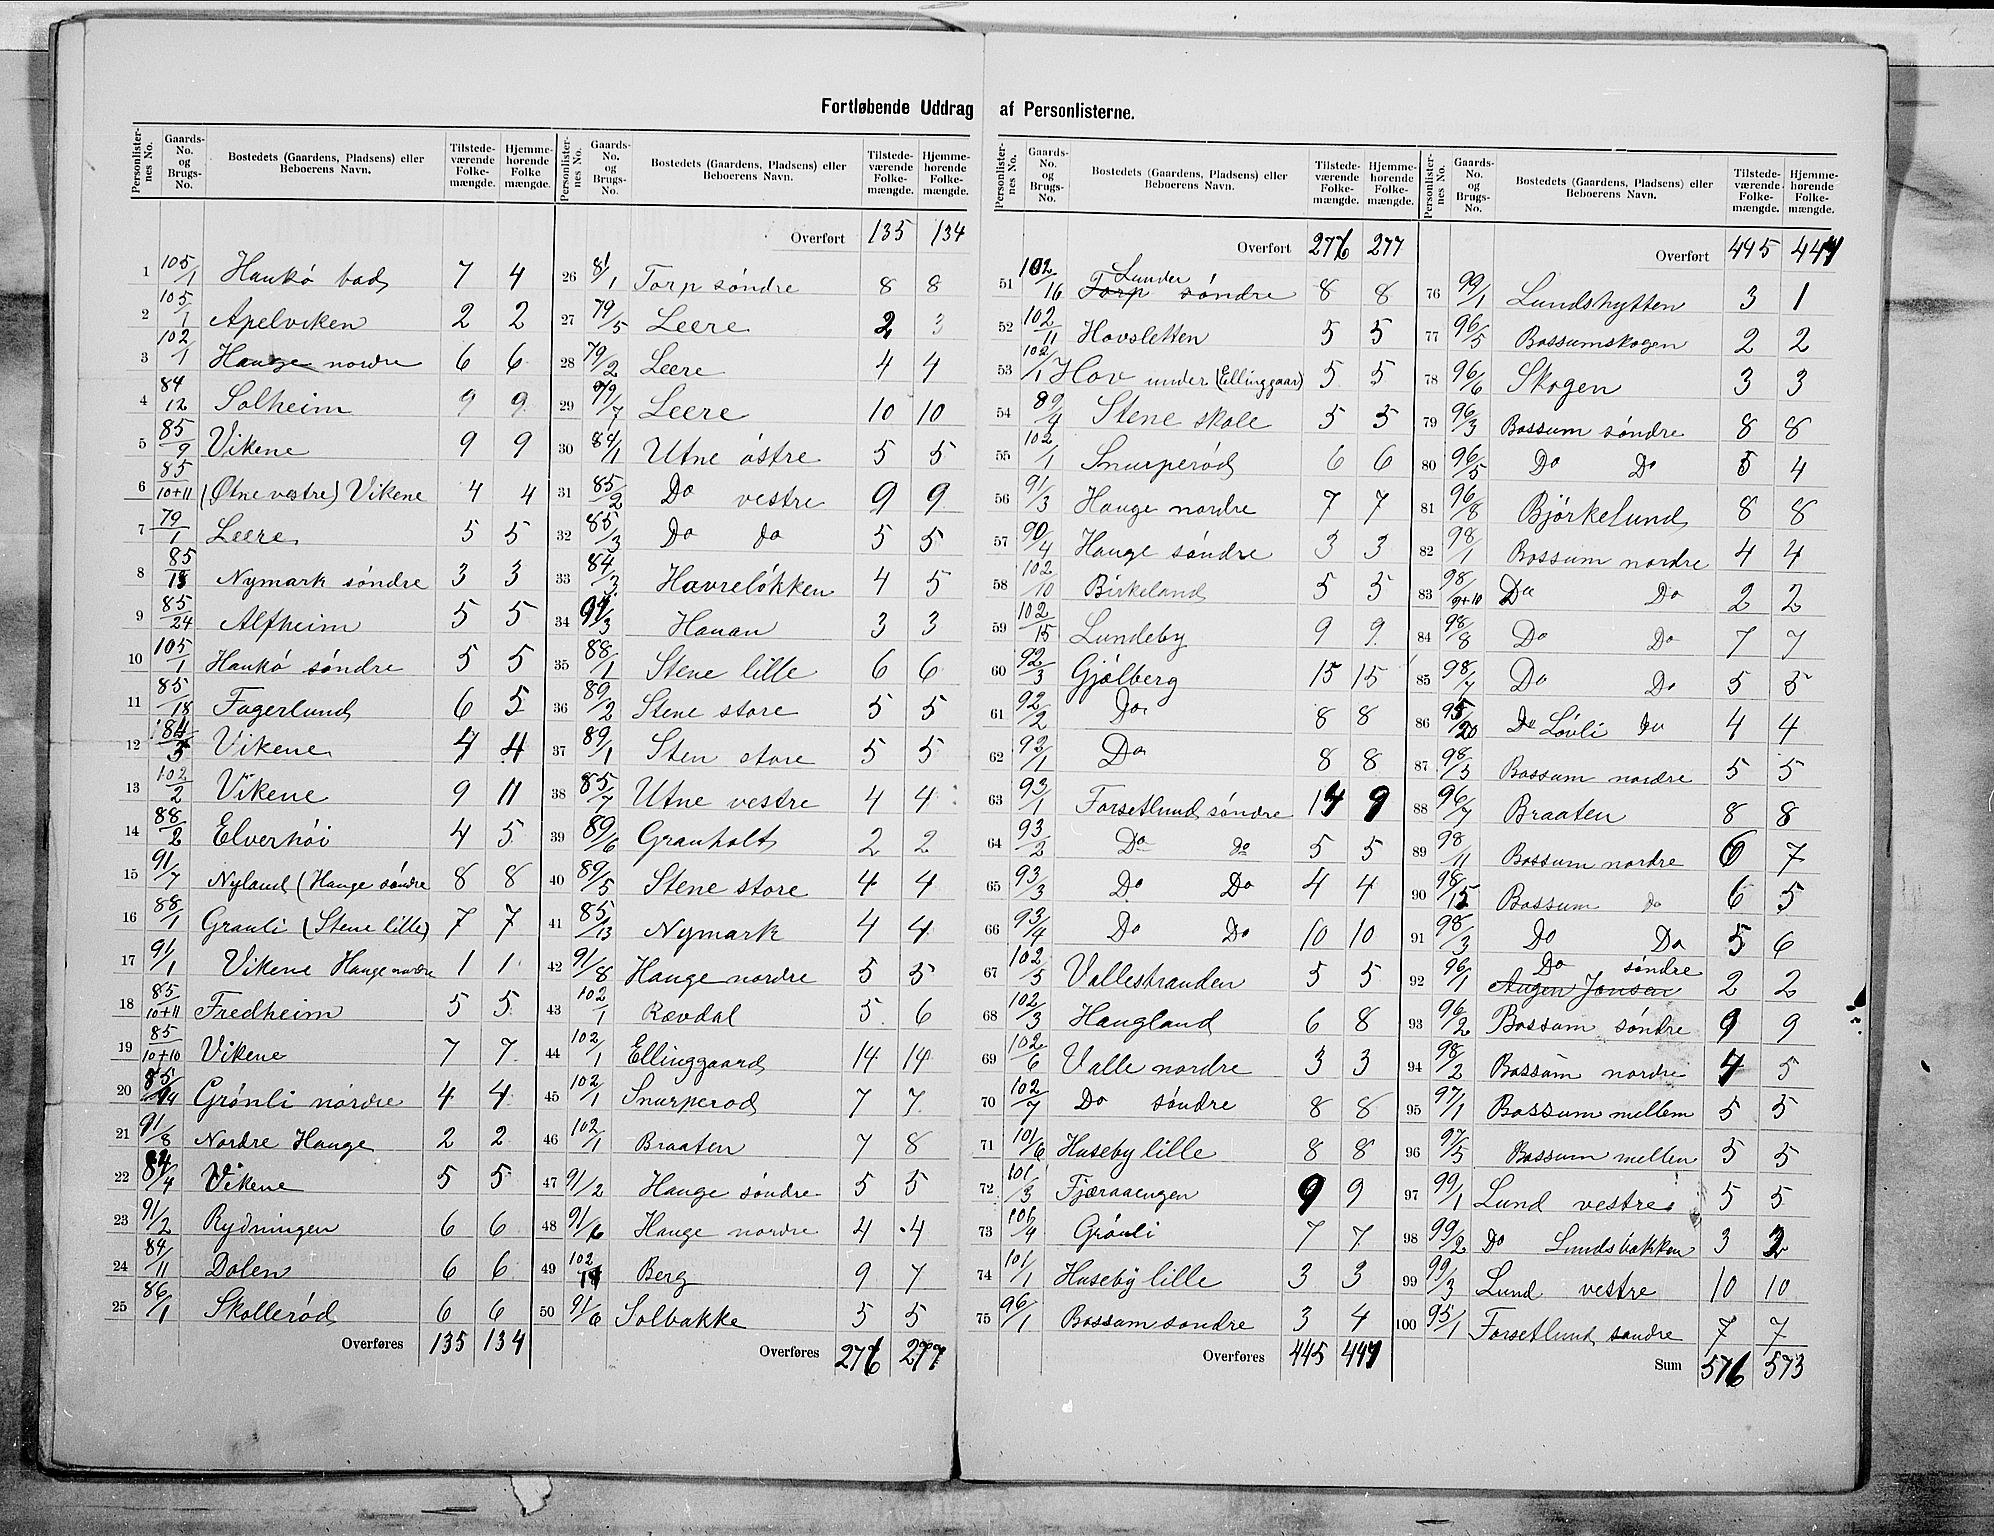 Fortløbende Uddrag af Personlisterne.
Personlisternes No. | Gaards-No. og Brugs-No. | Bostedets (Gaardens, Pladsens) eller Beboerens Navn. | Tilstedeværende Folkemængde. | Hjemmehørende Folkemængde.
1 105/1 Hankø bad 7 4
2 105/1 Apelviken 2 2
3 102/1 Hauge nordre 6 6
4 84/12 Solheim 9 9
5 85/9 Vikene 9 9
6 85/10+11 (Øtne vestre) Vikene 4 4
7 79/1 Leere 5 5
8 85/15 Nymark søndre 3 3
9 85/24 Alfheim 5 5
10 105/1 Hankø søndre 5 5
11 85/18 Fagerlund 6 5
12 84/5 Vikene 4 4
13 102/2 Vikene 9 11
14 88/2 Elverhøi 4 5
15 91/7 Nyland (Hauge søndre 8 8
16 88/1 Granli (Stene lille) 7 7
17 91/1 Vikene Hauge nordre 1 1
18 85/10+11 Fredheim 5 5
19 85/10+10 Vikene 7 7
20 85/14 Grønli nordre 4 4
21 91/8 Nordre Hauge 2 2
22 84/4 Vikene 5 5
23 91/2 Rydningen 6 6
24 84/11 Dalen 6 6
25 86/1 Skollerød 6 6
Overføres 135 134
Personlisternes No. | Gaards-No. og Brugs-No. | Bostedets (Gaardens, Pladsens) eller Beboerens Navn. | Tilstedeværende Folkemængde. | Hjemmehørende Folkemængde.
Overført 135 134
26 81/1 Torp søndre 8 8
27 79/5 Leere 2 3
28 79/2 Leere 4 4
29 79/7 Leere 10 10
30 84/1 Utne østre 5 5
31 85/2 Do vestre 9 9
32 85/3 Do do 5 5
33 84/3 Havreløkken 4 5
34 91/3 Hanan 3 3
35 88/1 Stene lille 6 6
36 89/2 Stene store 5 5
37 89/1 Sten store 5 5
38 85/7 Utne vestre 4 4
39 89/6 Granholt 2 2
40 89/5 Stene store 4 4
41 85/13 Nymark 4 4
42 91/8 Hauge nordre 5 5
43 102/1 Rævdal 5 6
44 102/1 Ellinggaard 14 14
45 102/1 Snurperod 7 7
46 102/1 Braaten 7 8
47 91/2 Hauge søndre 5 5
48 91/6 Hauge nordre 4 4
49 102/14 Berg 9 7
50 91/6 Solbakke 5 5
Overføres 276 277
Personlisternes No. | Gaards-No. og Brugs-No. | Bostedets (Gaardens, Pladsens) eller Beboerens Navn. | Tilstedeværende Folkemængde. | Hjemmehørende Folkemængde.
Overført 276 277
Lunder
51 102/16 Torp søndre 8 8
52 102/11 Hovsletten 5 5
53 102/1 Hov under (Ellinggaar) 5 5
54 89/4 Stene skole 5 5
55 102/1 Snurperød 6 6
56 91/3 Hauge nordre 7 7
57 90/4 Hauge søndre 3 3
58 102/10 Birkeland 5 5
59 102/15 Lundeby 9 9
60 92/3 Gjølberg 15 15
61 92/2 Do 8 8
62 92/1 Do 8 8
63 93/1 Forsetlund søndre 14 9
64 93/2 Do do 5 5
65 93/3 Do Do 4 4
66 93/4 Do Do 10 10
67 102/5 Vallestranden 5 5
68 102/3 Haugland 6 8
69 102/6 Valle nordre 3 3
70 102/7 Do søndre 8 8
71 101/6 Huseby lille 8 8
72 101/3 Fjæraaengen 9 9
73 101/4 Grønli 7 7
74 101/1 Huseby lille 3 3
75 96/1 Bossum søndre 3 4
Overføres 445 447
Personlisternes No. | Gaards-No. og Brugs-No. | Bostedets (Gaardens, Pladsens) eller Beboerens Navn. | Tilstedeværende Folkemængde. | Hjemmehørende Folkemængde.
Overført 445 447
76 99/1 Lundshytten 3 1
77 96/5 Bossumskogen 2 2
78 96/6 Skogen 3 3
79 96/3 Bossum søndre 8 8
80 96/5 Do Do 5 4
81 96/8 Bjørkelund 8 8
82 98/1 Bossum nordre 4 4
83 98/9+10 Do Do 2 2
84 98/8 Do Do 7 7
85 98/7 Do Do 5 5
86 95/20 Do Løvli do 4 4
87 98/5 Bossum nordre 5 5
88 96/7 Braaten 8 8
89 98/11 Bossum nordre 6 7
90 98/12 Bossum do 6 5
91 98/3 Do Do 5 6
Do søndre
92 96/1 Augen Jonsen 2 2
93 96/2 Bossum søndre 9 9
94 98/2 Bossum nordre 4 5
95 97/1 Bossum mellem 5 5
96 97/5 Bossum mellen 5 5
97 99/1 Lund vestre 5 5
98 99/2 Do Lundsbakken 3 2
99 99/3 Lund vestre 10 10
100 95/1 Forsetlund søndre 7 7
Sum 576 573